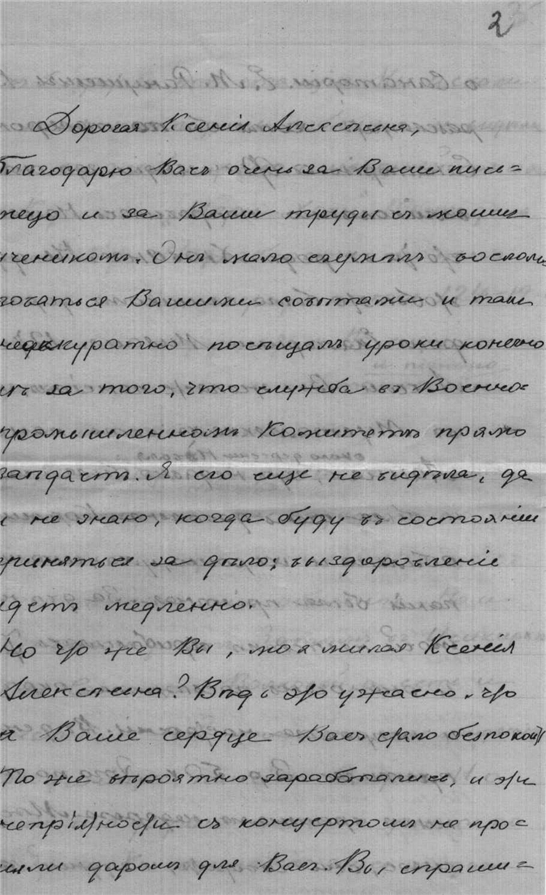 2
Дорогая Ксенія Алексѣевна,
благодарю Васъ очень за Ваше пись=
мецо и за Ваши труды съ моимъ
ученикомъ. Онъ мало сумѣлъ восполь=
зоваться Вашими совѣтами и такъ
неаккуратно посѣщалъ уроки конечно
изъ за того, что служба въ Военно=
промышленномъ Комитетѣ прямо
западаетъ. Я его еще не видѣла, да
и не знаю, когда буду въ состояніи
приняться за дѣло; выздоровленіе
идетъ медленно.
Но что же Вы, моя милая Ксенія
Алексѣевна? Вѣдь это ужасно, что
и Ваше сердце Васъ стало безпокоить
Тоже вѣроятно заработались, и эти
непріятности съ концертомъ не про=
шли даромъ для Васъ. Вы, спраши=